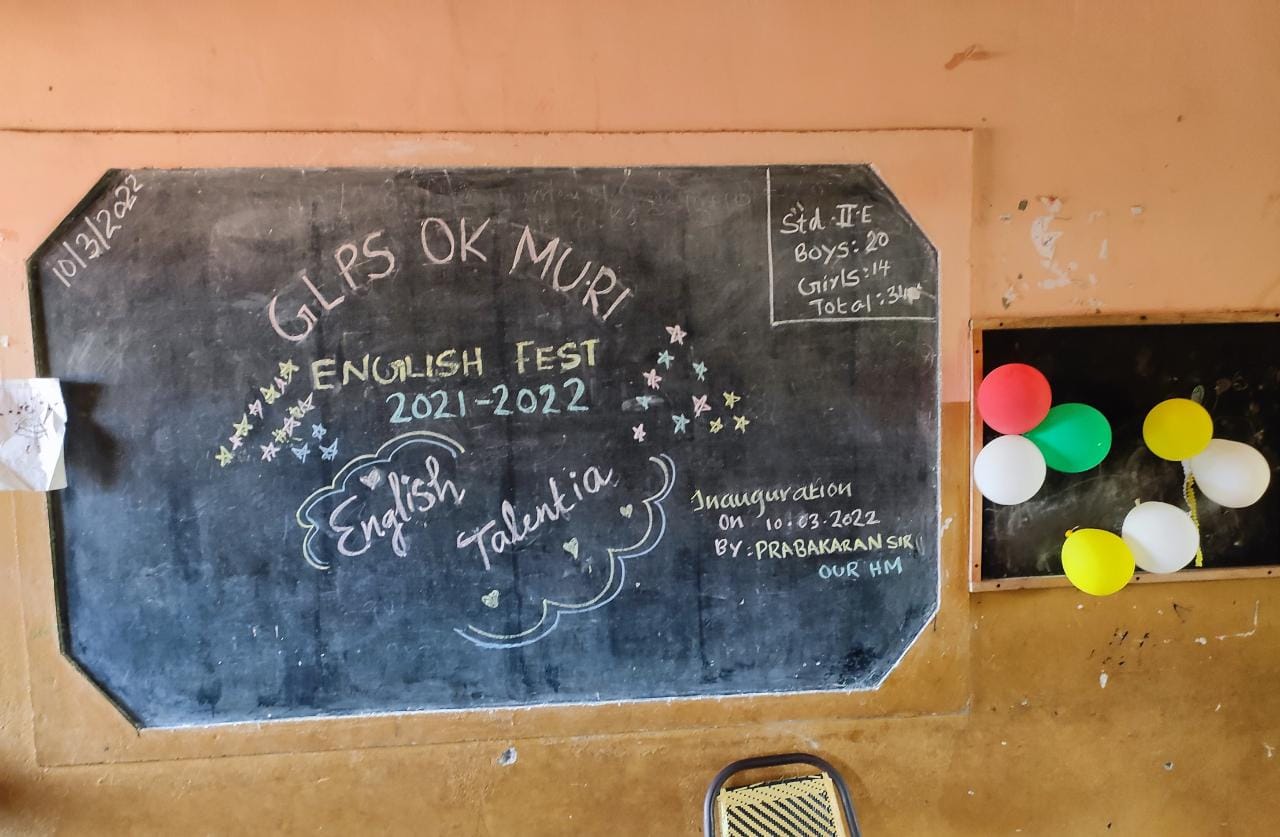 10/3/2022
GLPS OK MURI
ENGLISH FEST
2021-2022
English
Talentia
Std II E
Boys: 20
Girls: 14
Total: 34
Inauguration
On 10.03.2022
BY: PRABAKARAN SIR
OUR HM